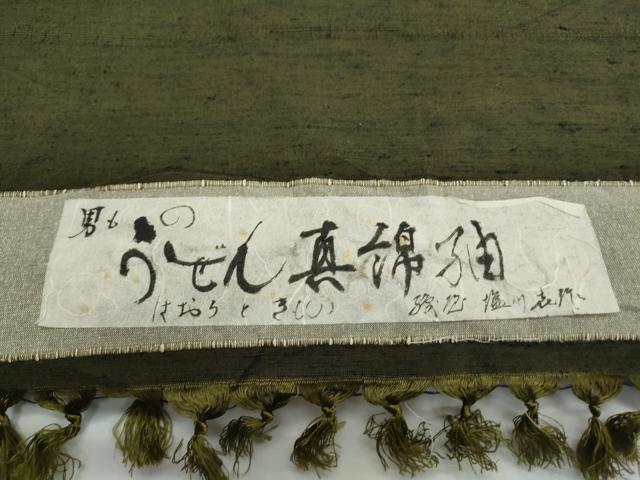 男もの
うぜん真綿紬
はおりときもの 塩川